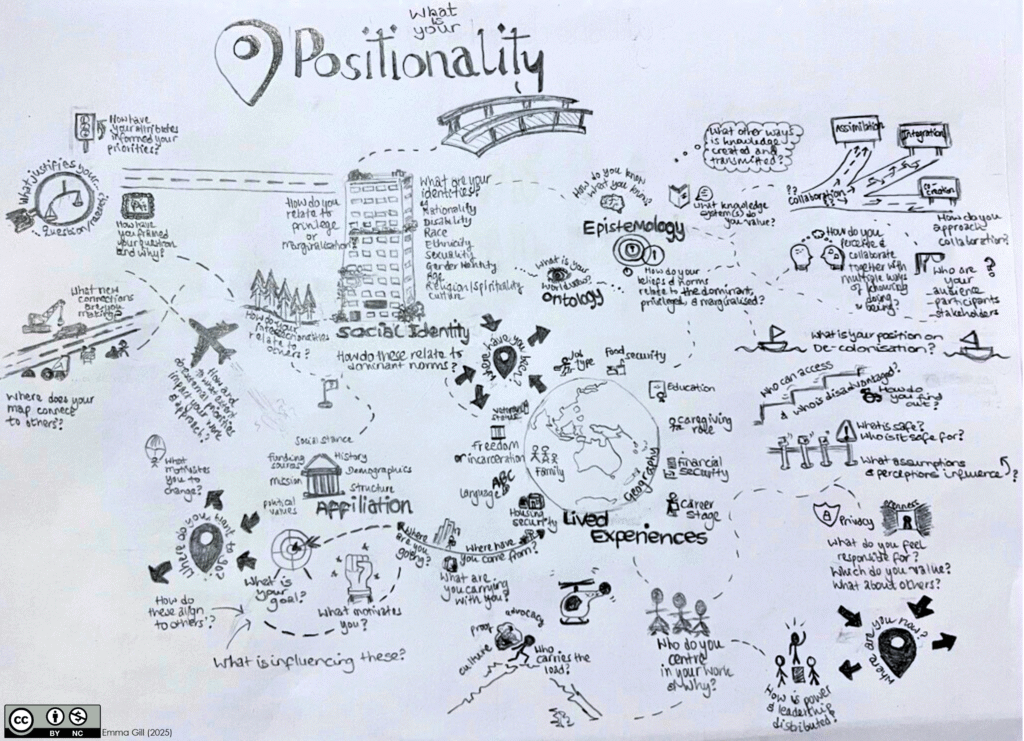 What
is
your
Positionality
How have
your attributes
informed your
priorities?
What justifies your
question/reasons?
How have
you framed
your question
and why?
How do you
relate to
privilege
or
marginalisation?
What are your
identities?
Nationality
Disability
Race
Ethnicity
Sexuality
Gender Identity
Age
Religion/Spirituality
Culture
Social Identity
How do these relate to
dominant norms?
How do your
intersectionalities
relate to
others?
How do you know
what you know?
Epistemology
What knowledge
system(s) do
you value?
What other ways
is knowledge
created and
transmitted?
What is your
worldview?
Ontology
How do your
beliefs & norms
relate to the dominant,
privileged & marginalised?
Assimilation
Integration
Co-creation
??
collaboration?
How do you
approach
collaboration?
How do you
perceive &
collaborate
together with
multiple ways of
knowing
doing
& being?
?
Who are
your
audience
participants
stakeholders
What is your position on
De-colonisation?
Who can access
& who is disadvantaged?
How do
you find
out?
What is safe?
Who isn't safe for?
What assumptions
& perceptions influence
?
What new
connections
are you
making?
Where does your
map connect
to others?
What
motivates
you to
change?
Where do you want to go?
How do
these align
to others'?
What is influencing these?
What is
your goal?
What motivates
you?
Social stance
funding
source
History
mission
Demographics
structure
political
values
Affiliation
Where have you been?
Job
type
Food security
Education
caregiving
role
financial
security
career
stage
Geography
Family
Freedom
or incarceration
ABC
Language
Housing
security
Lived
Experiences
Where
are you
going?
Where have
you come from?
What are
you carrying
with you?
advocacy
proof
culture
Who
carries the
load?
Who do you
centre
in your work
& Why?
How is power
& leadership
distributed?
Privacy
Openness
What do you feel
responsible for?
Which do you value?
What about others?
Where are you now?
cc BY NC
Emma Gill (2025)